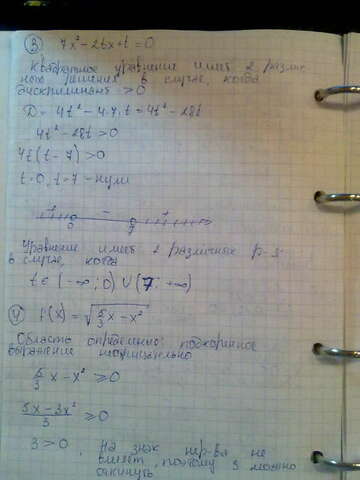 ③ 7x² - 2tx + t = 0
Квадратное уравнение имеет 2 различ
ных решения в случае, когда
дискриминант > 0
D = 4t² - 4·7·t = 4t² - 28t
4t² - 28t > 0
4t(t - 7) > 0
t = 0, t = 7 - нули
+ - +
0 7
Уравнение имеет 2 различных р-я
в случае, когда
t ∈ (-∞; 0) ∪ (7; +∞)
④ f(x) = √(5/3 x - x²)
Область определения: подкоренное
выражение неотрицательно
5/3 x - x² ≥ 0
(5x - 3x²)/3 ≥ 0
3 > 0, На знак нер-ва не
влияет, поэтому 3 можно
откинуть